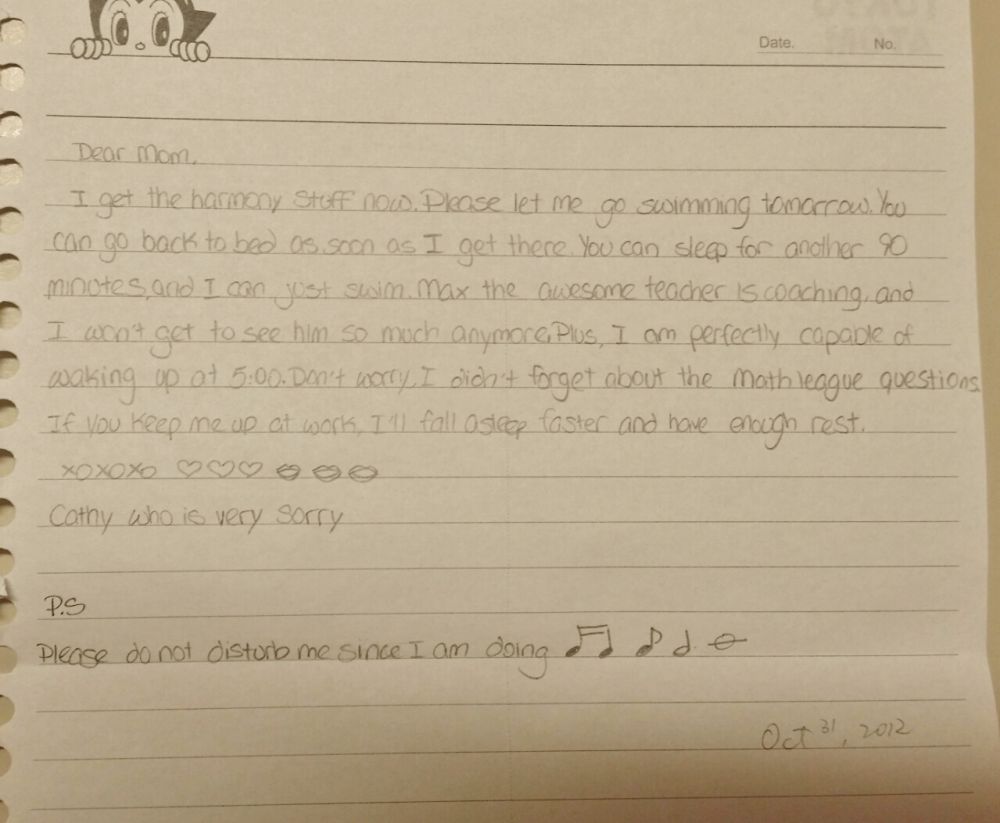 Date. No.
Dear Mom,
I get the harmony stuff now. Please let me go swimming tomorrow. You
can go back to bed as soon as I get there. You can sleep for another 90
minutes, and I can just swim. Max the awesome teacher is coaching, and
I won't get to see him so much anymore, Plus, I am perfectly capable of
waking up at 5:00. Don't worry, I didn't forget about the math league questions.
If you keep me up at work, I'll fall asleep faster and have enough rest.
xoxoxo ♡♡♡
Cathy who is very sorry
P.S
Please do not disturb me since I am doing ♫ ♪
Oct 31, 2012